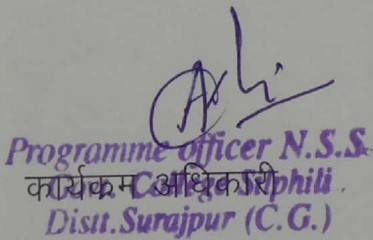 Programme officer N.S.S.
कार्यक्रम अधिकारी
Silphili
Distt. Surajpur (C.G.)